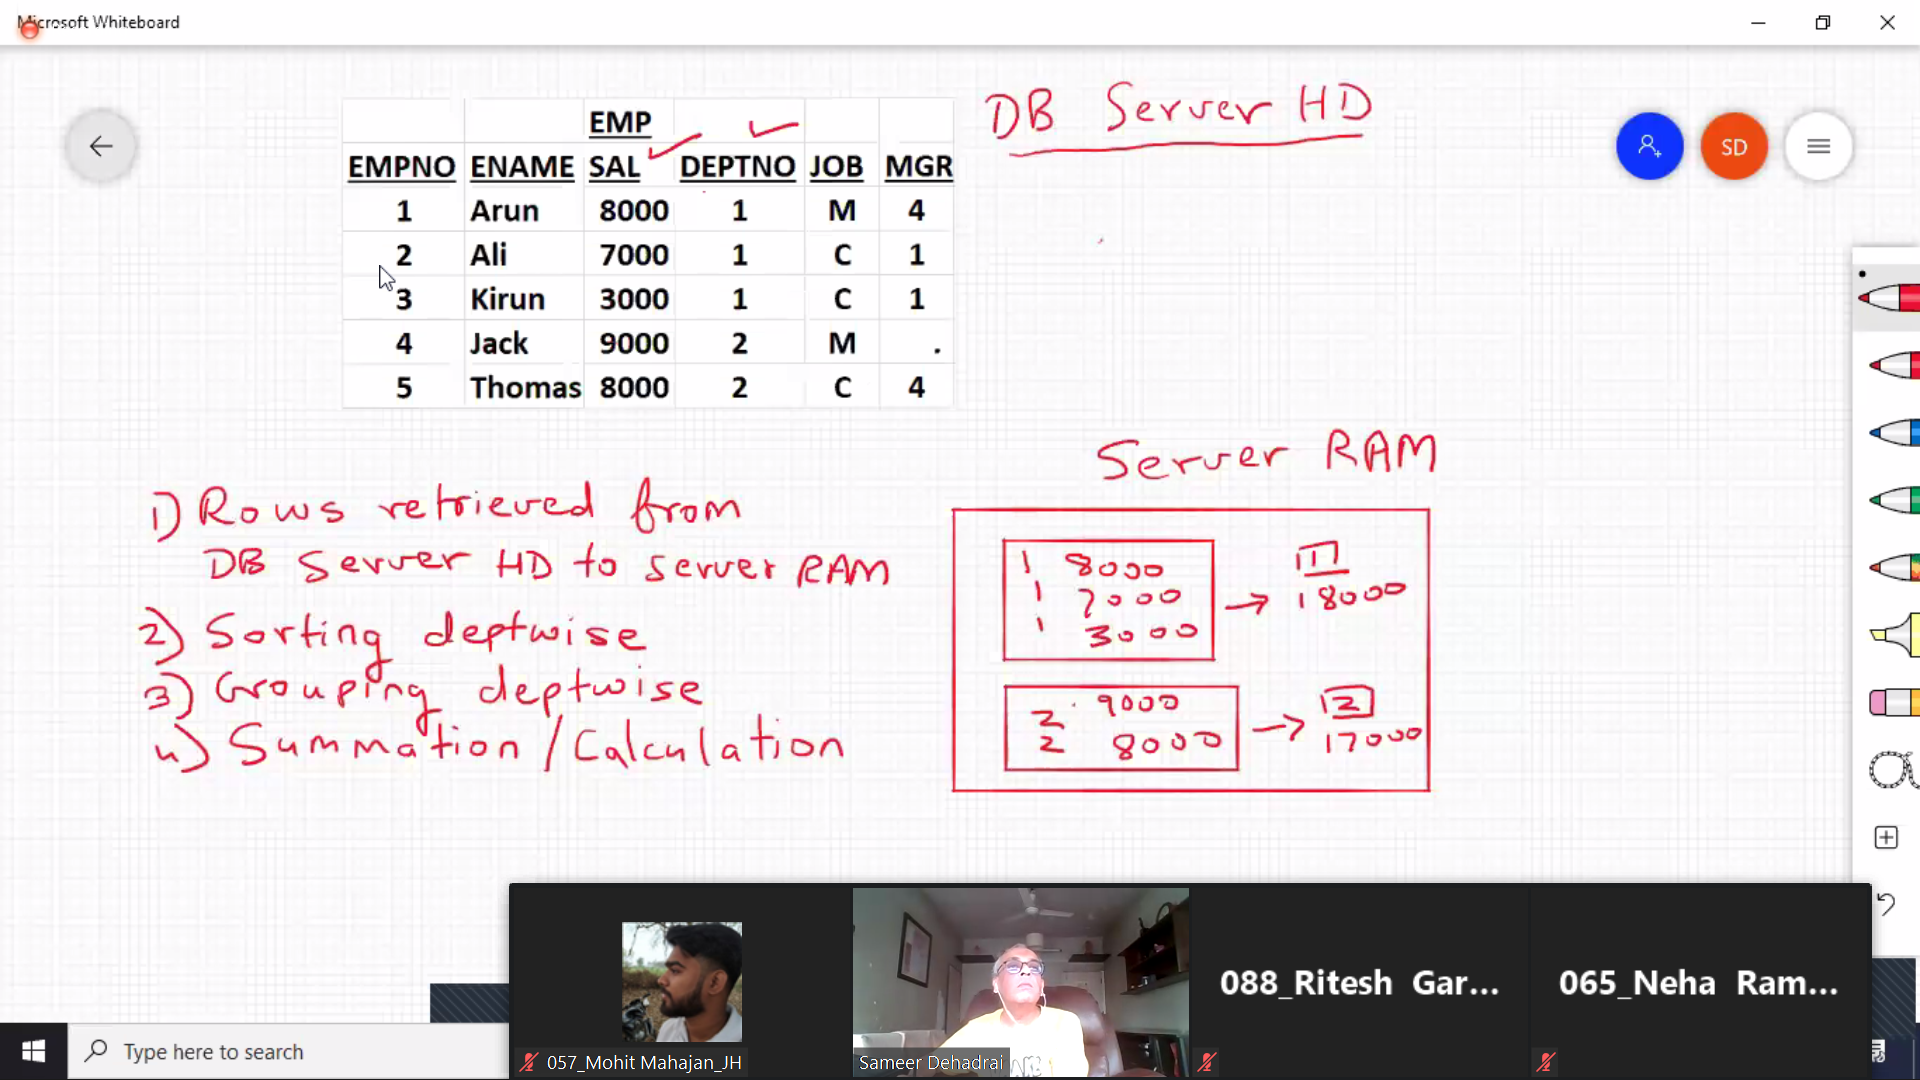 Microsoft Whiteboard
EMP
EMPNO ENAME SAL DEPTNO JOB MGR
1 Arun 8000 1 M 4
2 Ali 7000 1 C 1
3 Kirun 3000 1 C 1
4 Jack 9000 2 M .
5 Thomas 8000 2 C 4
DB Server HD
SD
1) Rows retrieved from
DB Server HD to server RAM
2) Sorting deptwise
3) Grouping deptwise
4) Summation / Calculation
Server RAM
1 8000
1 7000
1 3000
→ 1
18000
2 9000
2 8000
→ 2
17000
088_Ritesh Gar...
065_Neha Ram...
057_Mohit Mahajan_JH
Sameer Dehadrai
Type here to search